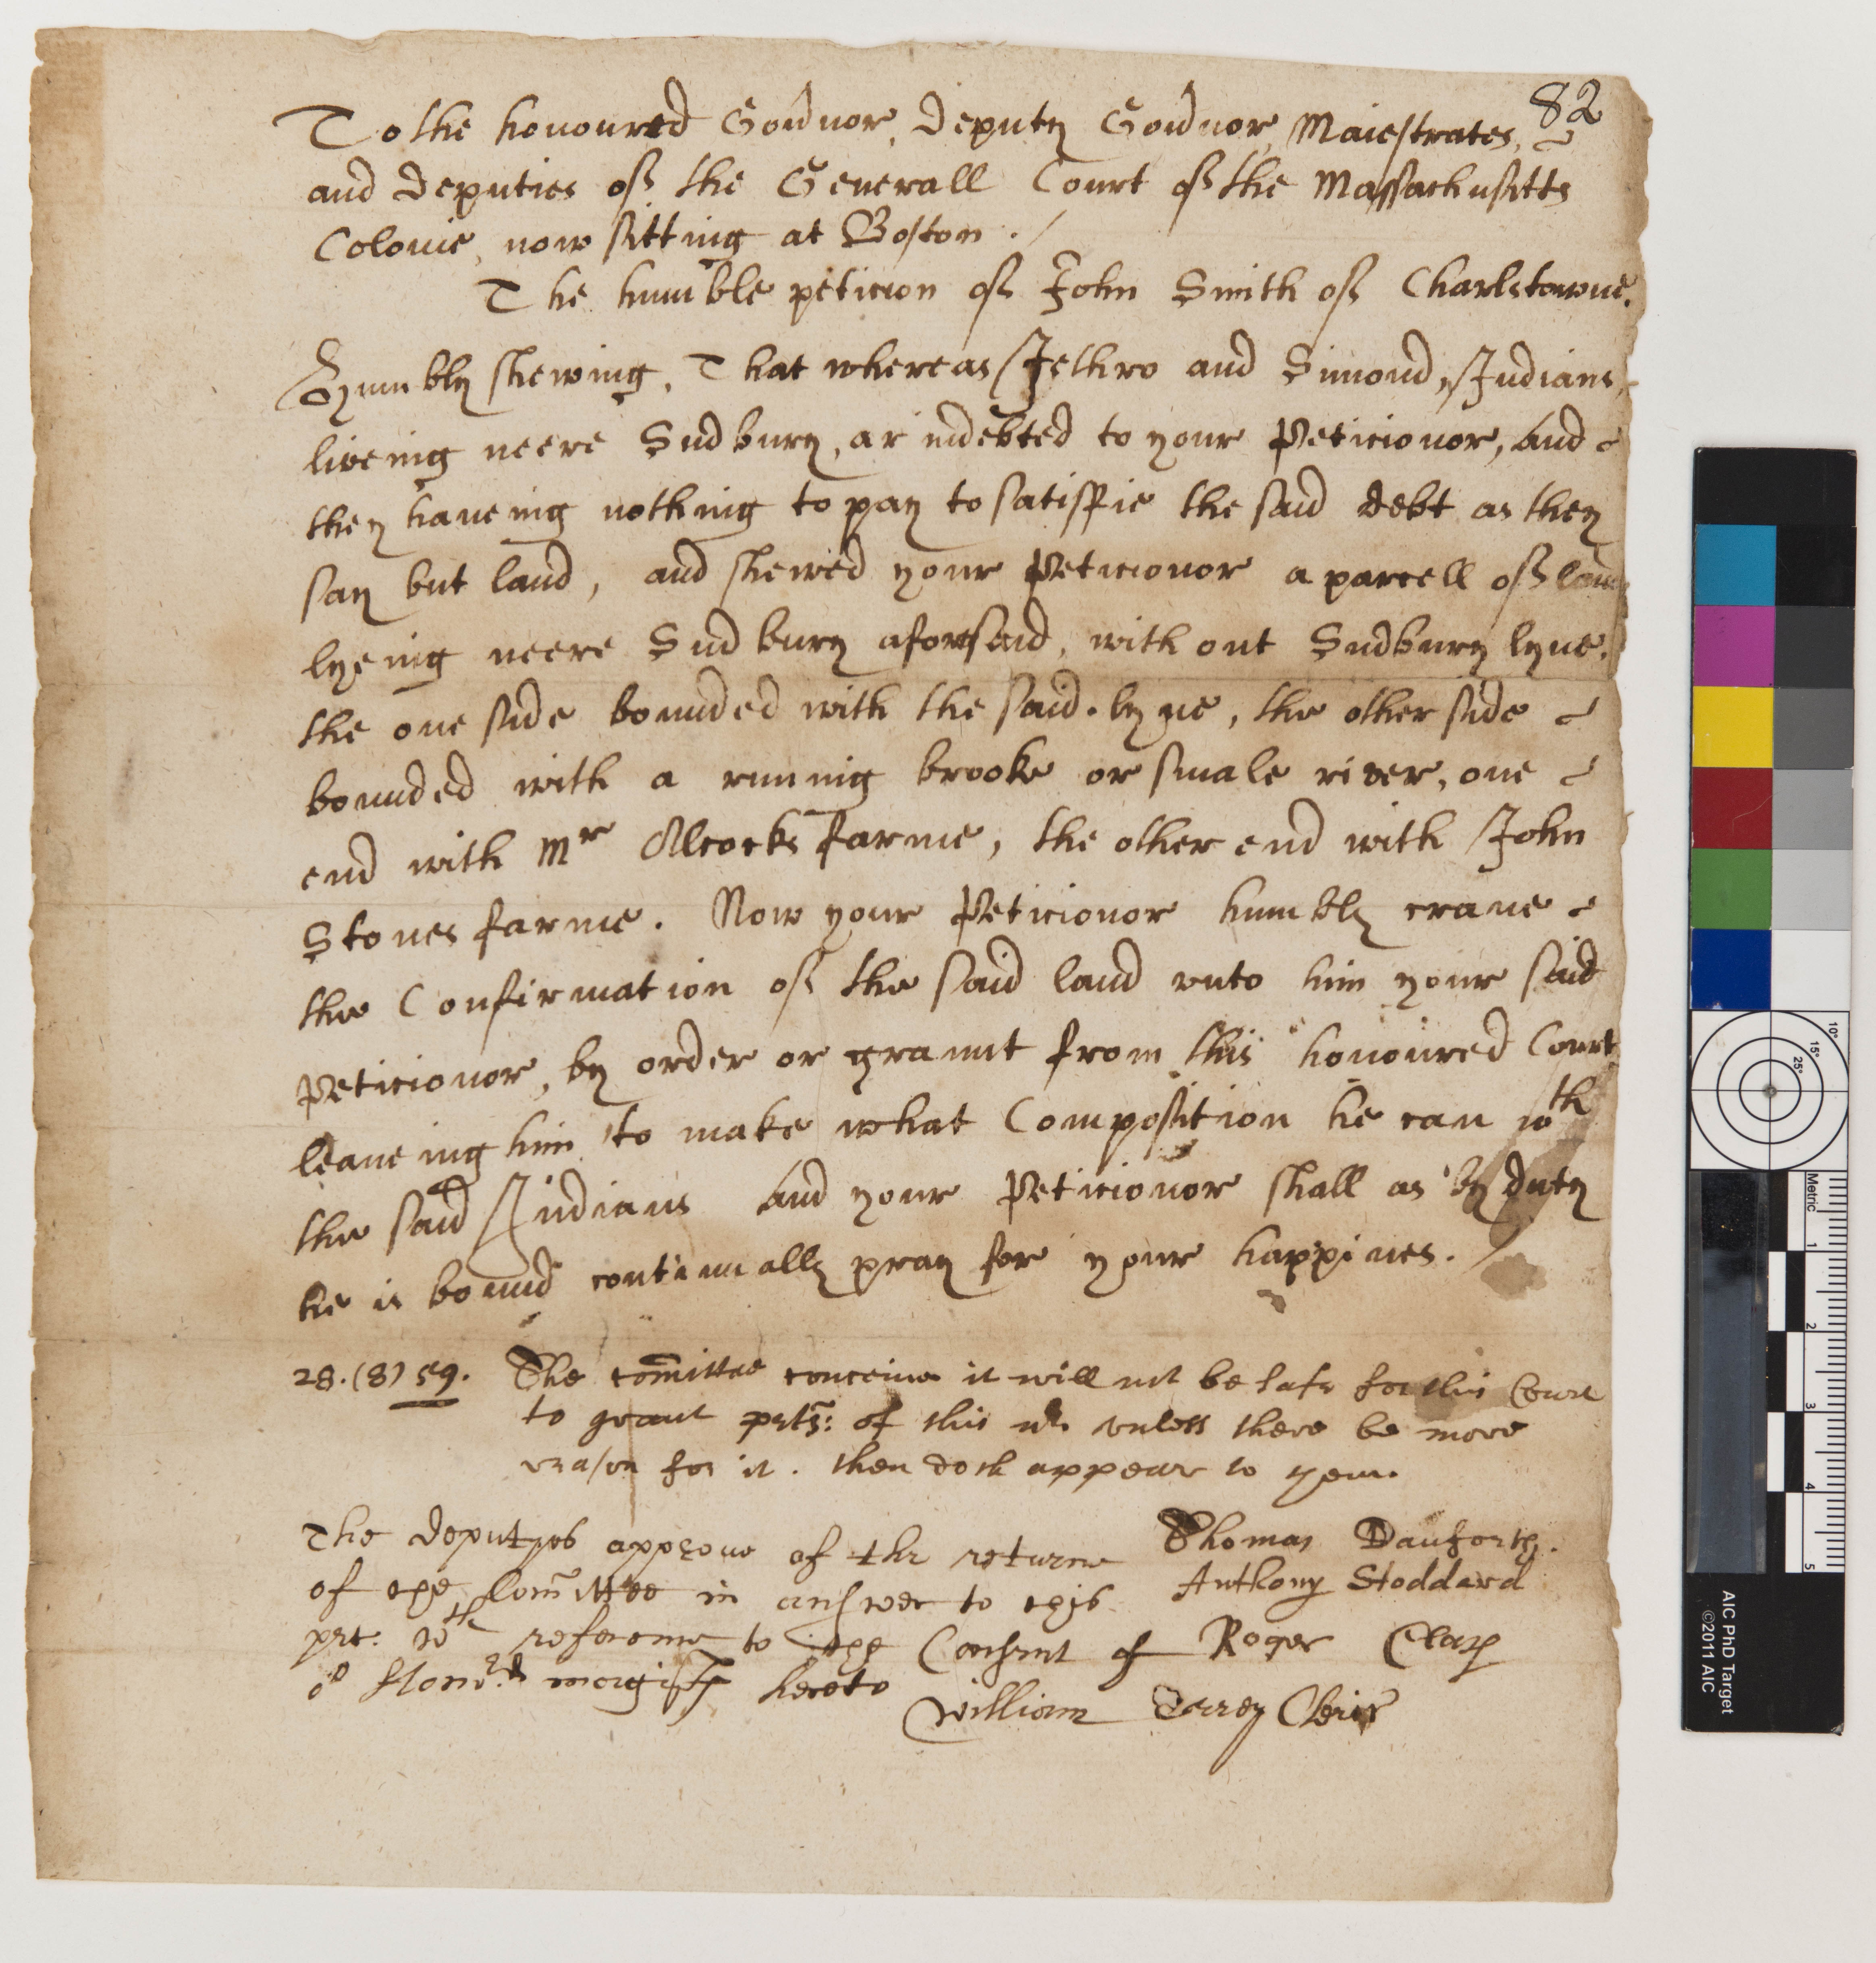 82
To the honoured Gouernor, Deputy Gouernor, Maiestrates,
and Deputies off the Generall Court off the Massachusitts
Colonie, now sitting at Boston ./
The humble peticion off John Smith off Charlstowne.
Humbly shewing, That whereas Jethro and Simond, Indians,
liveing neere Sudbury, ar indebted to your Peticionor, And
they haueing nothing to pay to satisffie the said debt as they
say but land, and shewed your Peticionor a parcell off land
lyeing neere Sudbury aforesaid, with out Sudbury lyne.
the one side bounded with the said lyne, the other side
bounded with a runnig brooke or smale river, one
end with Mr Alcocks farme, the other end with John
Stones farme. Now your Peticionor humbly craue
the Confirmation off the said land vnto him your said
Peticionor, by order or graunt from this honoured Court
leaueing him to make what Composition he can wth
the said Indians And your Peticionor shall as by duty
he is bound continually pray for your happines. /
28.(8) 59. The comittee conceiue it will not be safe for this Court
to graunt of this unless there be more
reason for it. then doth appear to
The Deputyes approue of the returne
of the Comittee in answer to this
pet: wth reference to the Consent of
or Honord magists hereto
Thomas Danforth.
Anthony Stoddard
Roger Clap
William Torrey Cleric
AIC PhD Target
©2011 AIC
Metric
1
2
3
4
5
10°
15°
25°